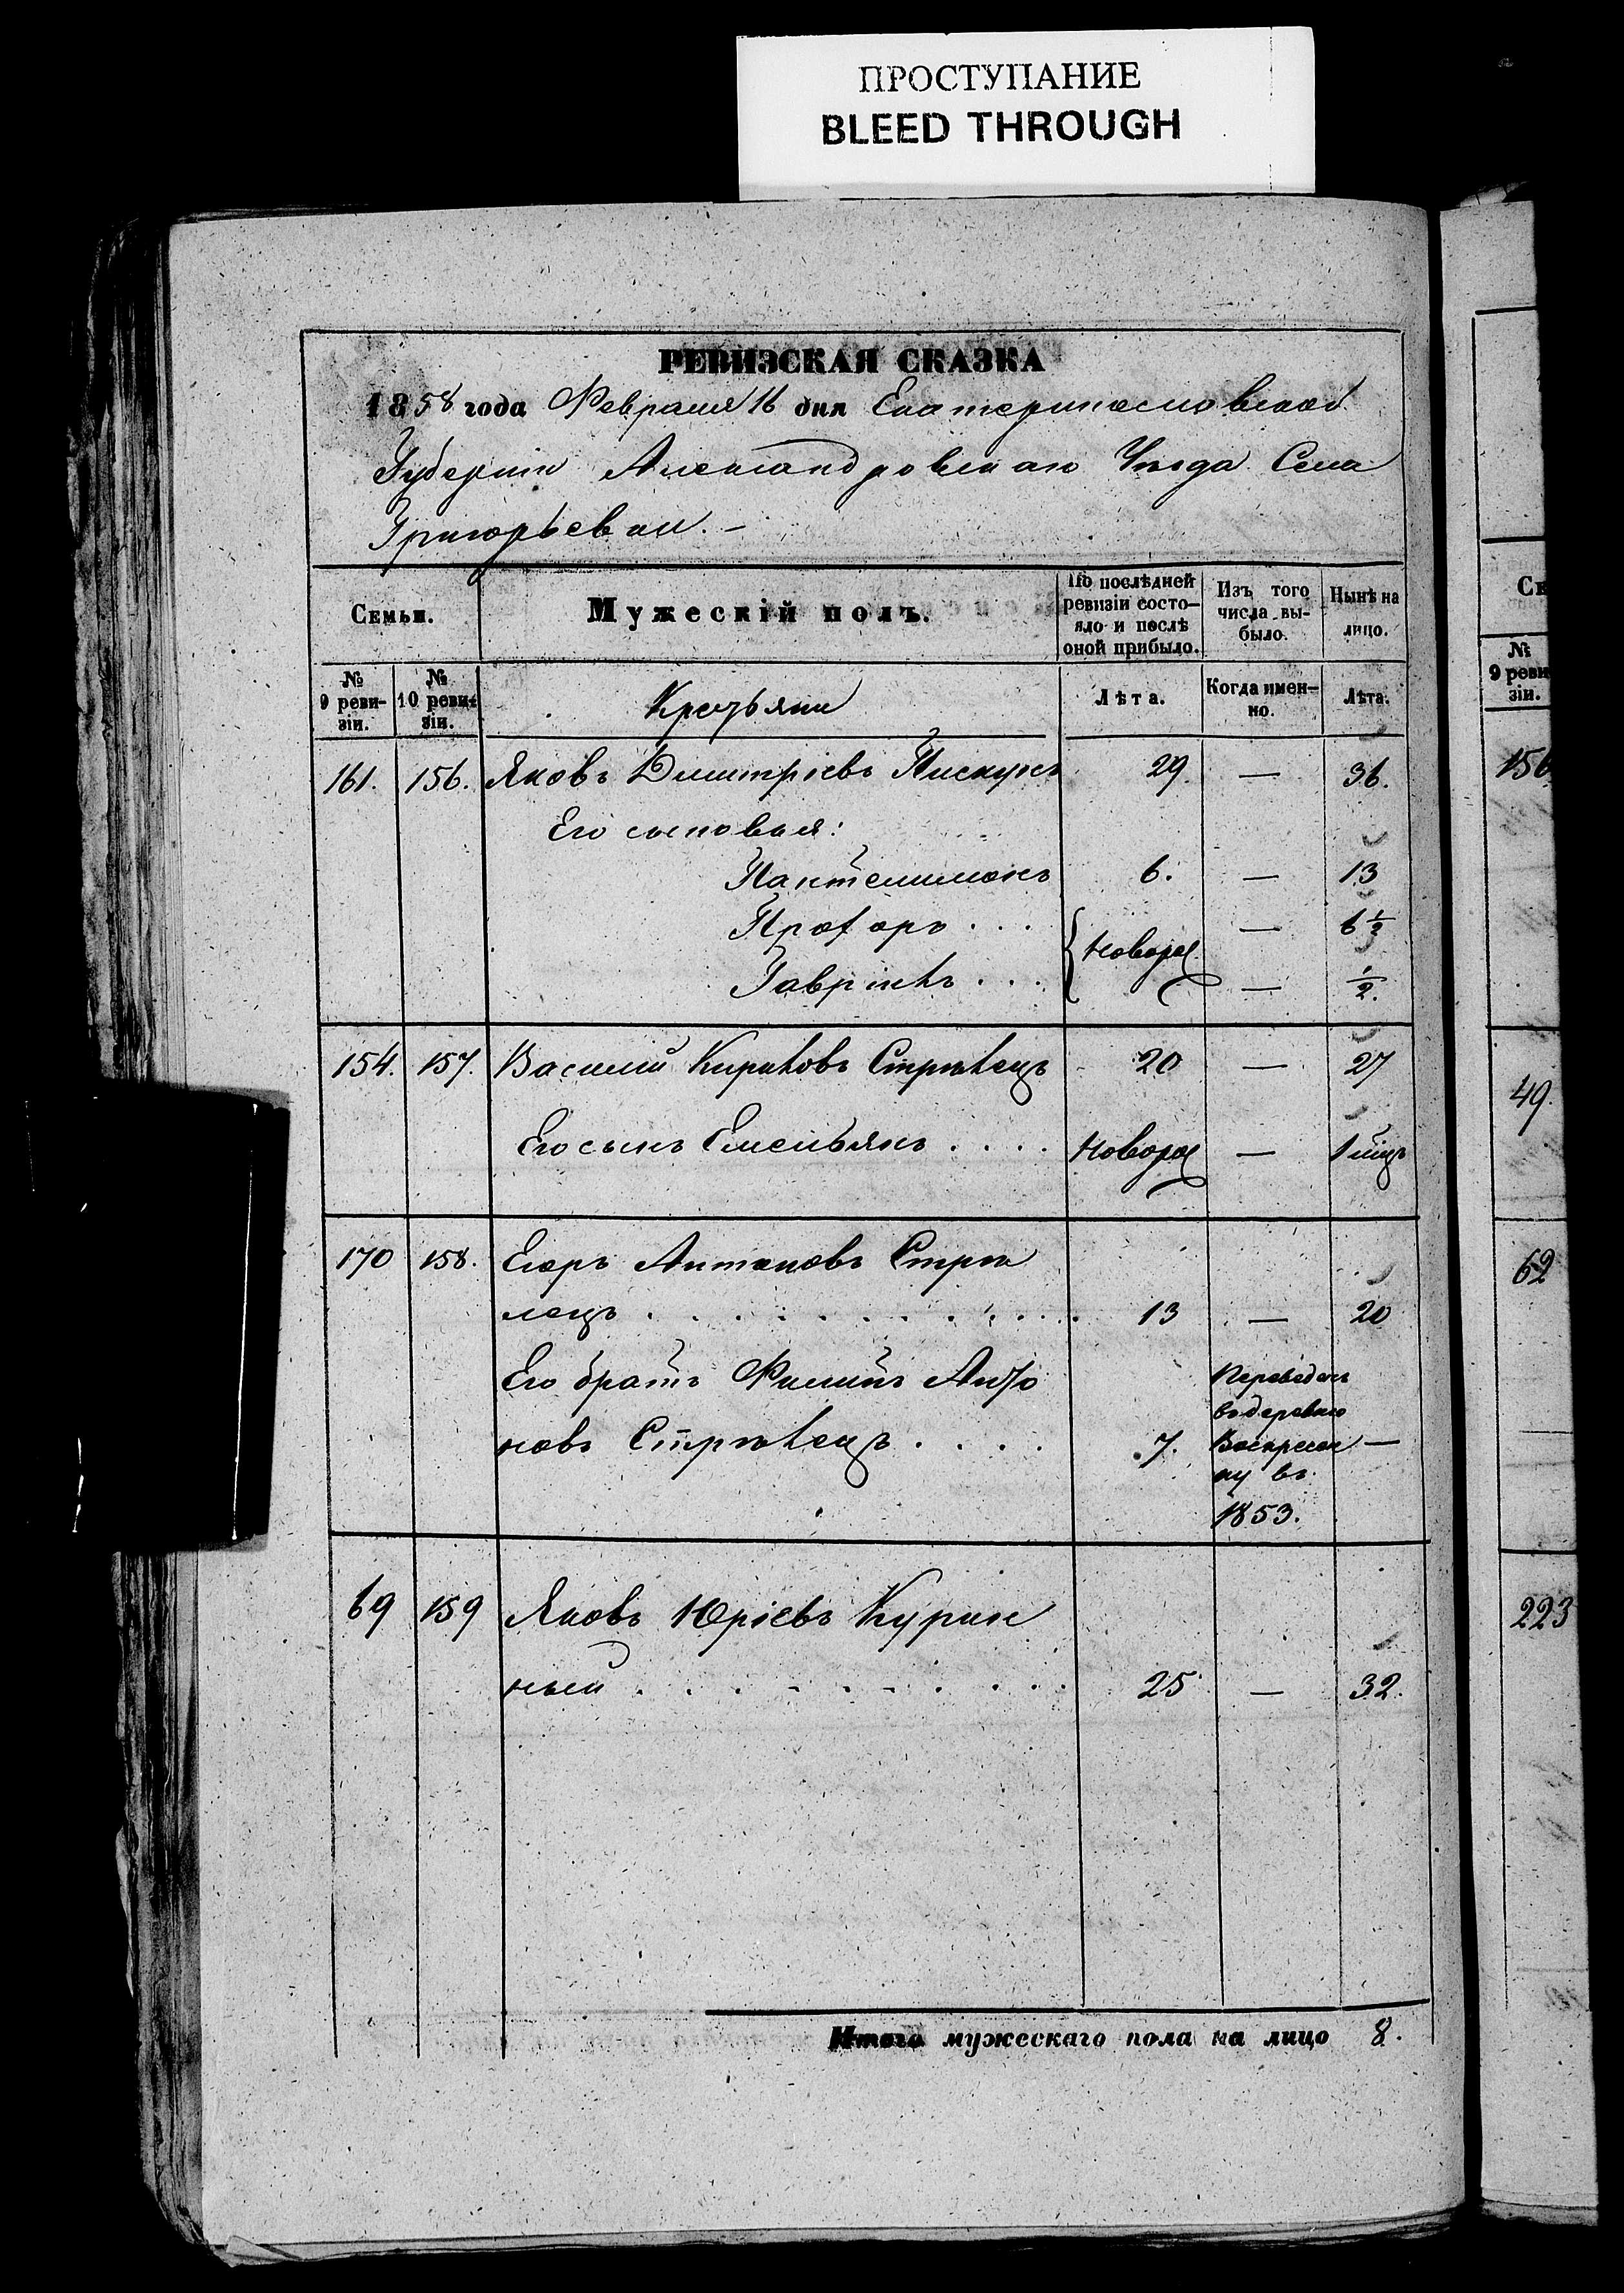 ПРОСТУПАНИЕ
BLEED THROUGH
РЕВИЗСКАЯ СКАЗКА
1858 года Февраля 16 дня Екатеринославской
Губерніи Александровскаго Уѣзда Села
Григорьевки.-
Семьи.
Мужескій полъ.
По послѣдней ревизіи состо-
яло и послѣ
оной прибыло.
Изъ того
числа вы-
было.
Нынѣ на
лицо.
№
9 реви-
зіи.
№
10 реви-
зіи.
Крестьяни
Лѣта.
Когда имен-
но.
Лѣта.
161. 156. Яковъ Димитріевъ Пискунъ 29. — 36.
Его сыновья:
Пантелимонъ 6. — 13
Прохоръ . . . Новорож — 6 1/2
Гавріилъ . . . — 1/2.
154. 157. Василий Кириловъ Стрѣлецъ 20 — 27
Его сынъ Емельянъ . . . . Новорож — 1 мцъ
170 158. Егоръ Антоновъ Стрѣ
лецъ . . . . . . . . . . . . 13 — 20
Его братъ Филипъ Анто
новъ Стрѣлецъ . . . . 7. —
Переведенъ
въ деревню
Воскресен
ку въ
1853.
69 159 Яковъ Юріевъ Курин
ный . . . . . . . . . . 25 — 32.
Итого мужескаго пола на лицо 8.
Се
№
9 реви
зіи.
156
49.
62
223